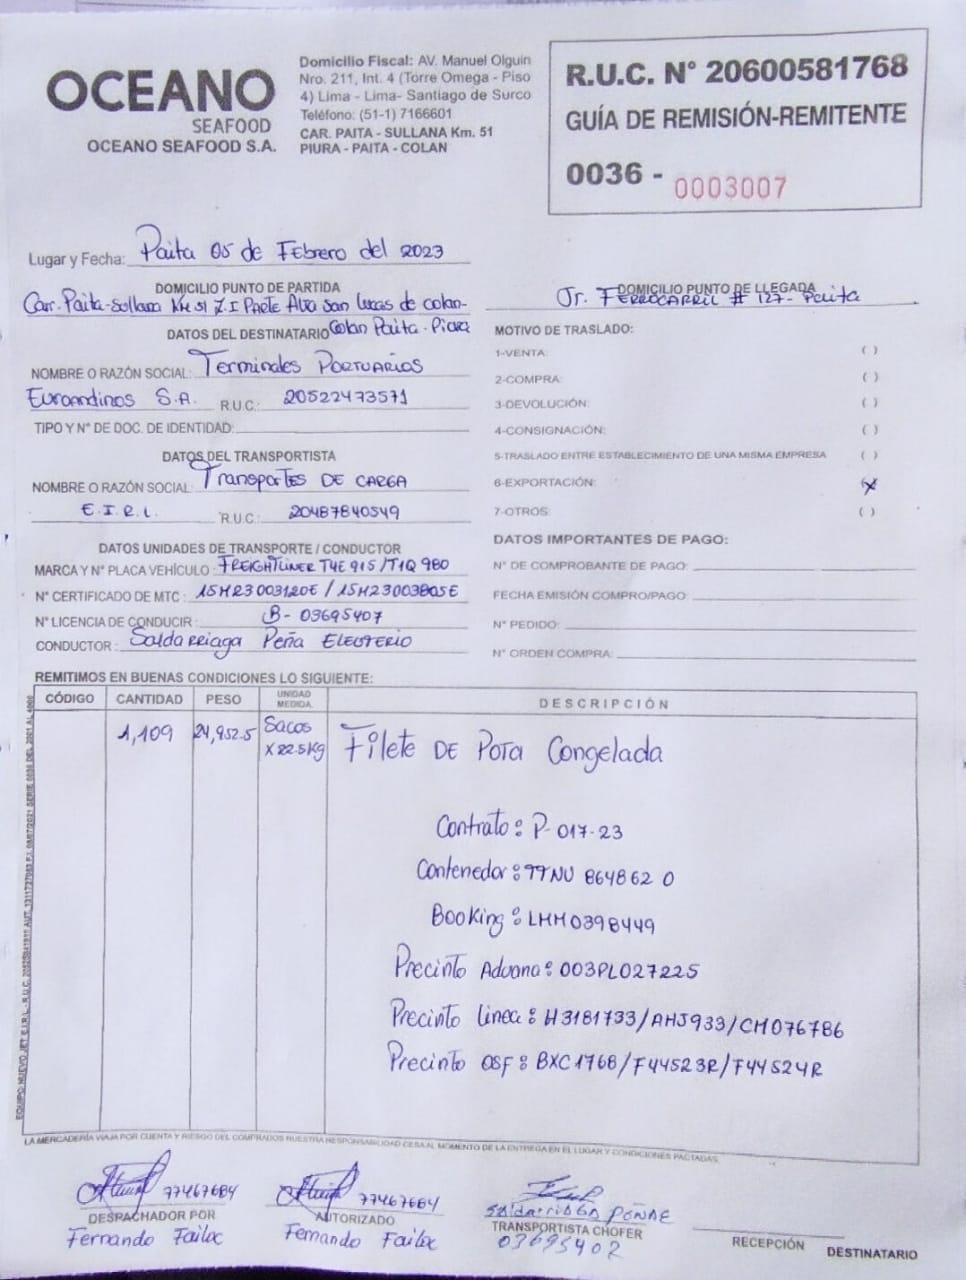 OCEANO
SEAFOOD
OCEANO SEAFOOD S.A.
Domicilio Fiscal: AV. Manuel Olguin
Nro. 211, Int. 4 (Torre Omega - Piso
4) Lima - Lima- Santiago de Surco
Teléfono: (51-1) 7166601
CAR. PAITA - SULLANA Km. 51
PIURA - PAITA - COLAN
R.U.C. N° 20600581768
GUÍA DE REMISIÓN-REMITENTE
0036 - 0003007
Lugar y Fecha: Paita 05 de Febrero del 2023
DOMICILIO PUNTO DE PARTIDA
Car. Paita-Sullana KM 51 Z.I Parte Alta San Lucas de Colan-
Colan Paita - Piura
DOMICILIO PUNTO DE LLEGADA
Jr. FERROCARRIL # 127- Paita
DATOS DEL DESTINATARIO
NOMBRE O RAZÓN SOCIAL: Terminales PORTUARIOS
Euroandinos S.A. R.U.C.: 20522473571
TIPO Y N° DE DOC. DE IDENTIDAD:
DATOS DEL TRANSPORTISTA
NOMBRE O RAZÓN SOCIAL: Transportes DE CARGA
E.I.R.L. R.U.C.: 20487840549
DATOS UNIDADES DE TRANSPORTE / CONDUCTOR
MARCA Y N° PLACA VEHÍCULO: FREIGHTLINER T4E 915 / T1Q 980
N° CERTIFICADO DE MTC: 15M23003120E / 15M23003805E
N° LICENCIA DE CONDUCIR: B- 03695407
CONDUCTOR: Saldarriaga Peña ELEUTERIO
MOTIVO DE TRASLADO:
1-VENTA: ( )
2-COMPRA: ( )
3-DEVOLUCIÓN: ( )
4-CONSIGNACIÓN: ( )
5-TRASLADO ENTRE ESTABLECIMIENTO DE UNA MISMA EMPRESA ( )
6-EXPORTACIÓN: (X)
7-OTROS: ( )
DATOS IMPORTANTES DE PAGO:
N° DE COMPROBANTE DE PAGO:
FECHA EMISIÓN COMPRO/PAGO:
N° PEDIDO:
N° ORDEN COMPRA:
REMITIMOS EN BUENAS CONDICIONES LO SIGUIENTE:
CÓDIGO CANTIDAD PESO UNIDAD MEDIDA DESCRIPCIÓN
1,109 24,952.5 Sacos X 22.5Kg Filete DE POTA Congelada
Contrato: P-017-23
Contenedor: TTNU 864862 0
Booking: LMM0398449
Precinto Aduana: 003PL027225
Precinto Linea: H3181733/AHJ933/CM076786
Precinto OSF: BXC1768/F44523R/F44524R
LA MERCADERÍA VIAJA POR CUENTA Y RIESGO DEL COMPRADOS NUESTRA RESPONSABILIDAD CESA AL MOMENTO DE LA ENTREGA EN EL LUGAR Y CONDICIONES PACTADAS.
77467684
DESPACHADOR POR
Fernando Failoc
77467684
AUTORIZADO
Fernando Failoc
Saldarriaga PEÑAE
TRANSPORTISTA CHOFER
03695402
RECEPCIÓN DESTINATARIO